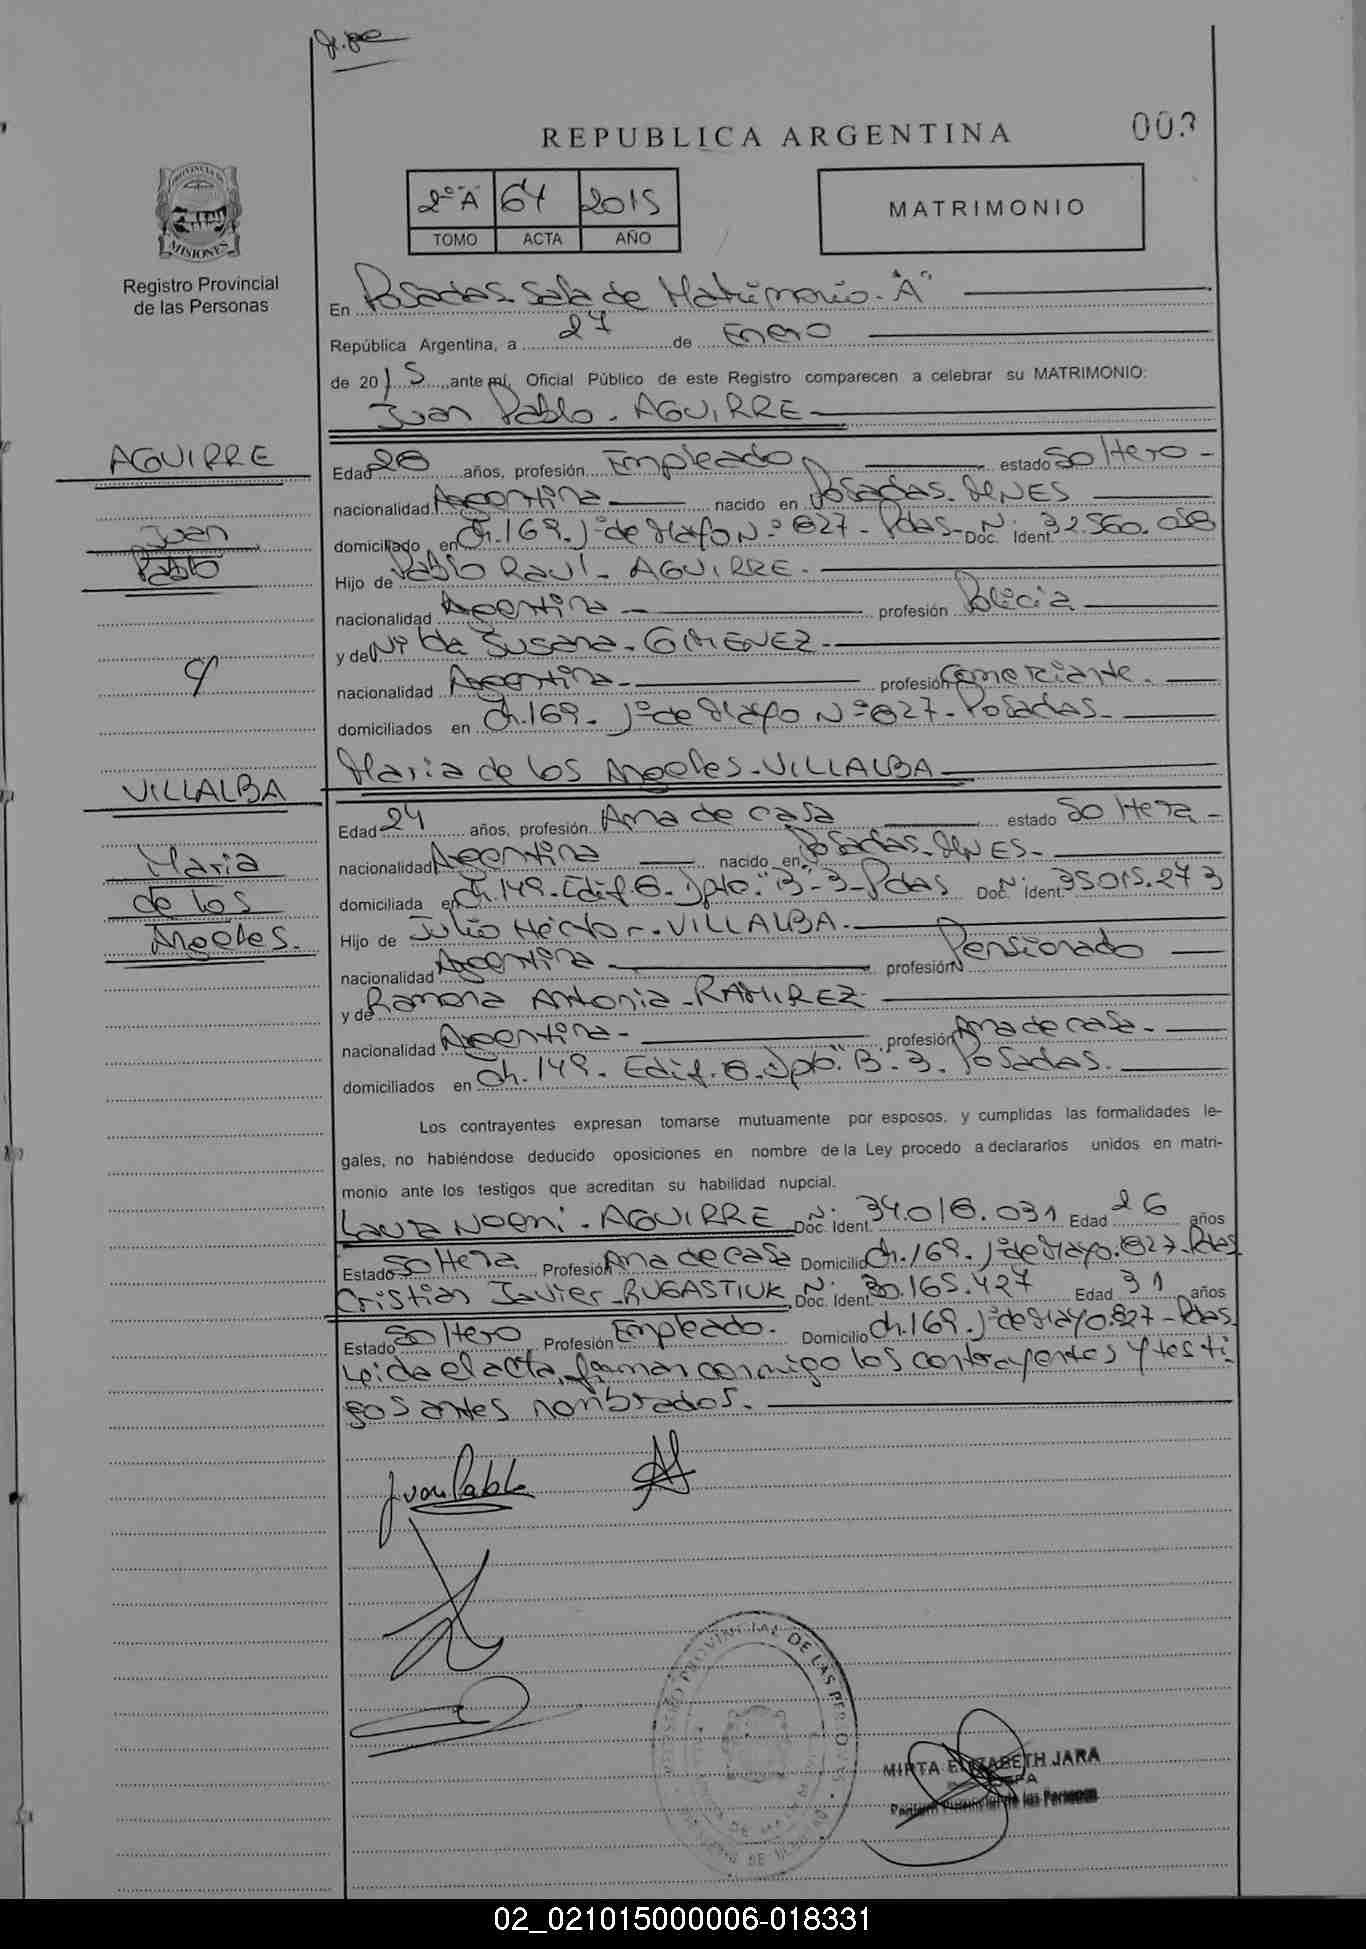 REPUBLICA ARGENTINA
003
PROVINCIA DE
MISIONES
Registro Provincial
de las Personas
2º A 64 2015
TOMO ACTA AÑO
MATRIMONIO
En Posadas. Sala de Matrimonio. "A"
República Argentina, a 27 de Enero
de 2015, ante mí, Oficial Público de este Registro comparecen a celebrar su MATRIMONIO:
Juan Pablo. AGUIRRE
AGUIRRE
Juan
Pablo
y
VILLALBA
Maria
de los
Angeles.
Edad 28 años, profesión Empleado estado Soltero
nacionalidad Argentina nacido en Posadas. MNES
domiciliado en Ch. 169. 1º de Mayo Nº 827. Pdas. Doc. Nº Ident. 32.560.058
Hijo de Pablo Raul. AGUIRRE.
nacionalidad Argentina profesión Policia
y de Nilda Susana. GIMENEZ.
nacionalidad Argentina profesión Comerciante.
domiciliados en Ch. 169. 1º de Mayo Nº 827. Posadas.
Maria de los Angeles. VILLALBA
Edad 24 años, profesión Ama de casa estado Soltera
nacionalidad Argentina nacido en Posadas. MNES.
domiciliada en Ch. 149. Edif. 8. Dpto. "B". 3. Pdas Doc. Nº Ident. 35015.273
Hijo de Julio Héctor. VILLALBA.
nacionalidad Argentina profesión Pensionado
y de Ramona Antonia. RAMIREZ.
nacionalidad Argentina profesión Ama de casa.
domiciliados en Ch. 149. Edif. 8. Dpto. "B". 3. Posadas.
Los contrayentes expresan tomarse mutuamente por esposos, y cumplidas las formalidades le-
gales, no habiéndose deducido oposiciones en nombre de la Ley procedo a declararlos unidos en matri-
monio ante los testigos que acreditan su habilidad nupcial.
Laura Noemi. AGUIRRE Doc. Nº Ident. 34.018.031 Edad 26 años
Estado Soltera Profesión Ama de casa Domicilio Ch. 169. 1º de Mayo. 827. Pdas
Cristian Javier. RUGASTIUK Doc. Nº Ident. 30.165.427 Edad 31 años
Estado Soltero Profesión Empleado. Domicilio Ch. 169. 1º de Mayo. 827. Pdas.
Leida el acta, firman conmigo los contrayentes y testi
gos antes nombrados.
Juan Pablo
REGISTRO PROVINCIAL DE LAS PERSONAS
MIRTA ELIZABETH JARA
Registro Provincial de las Personas
02_021015000006-018331